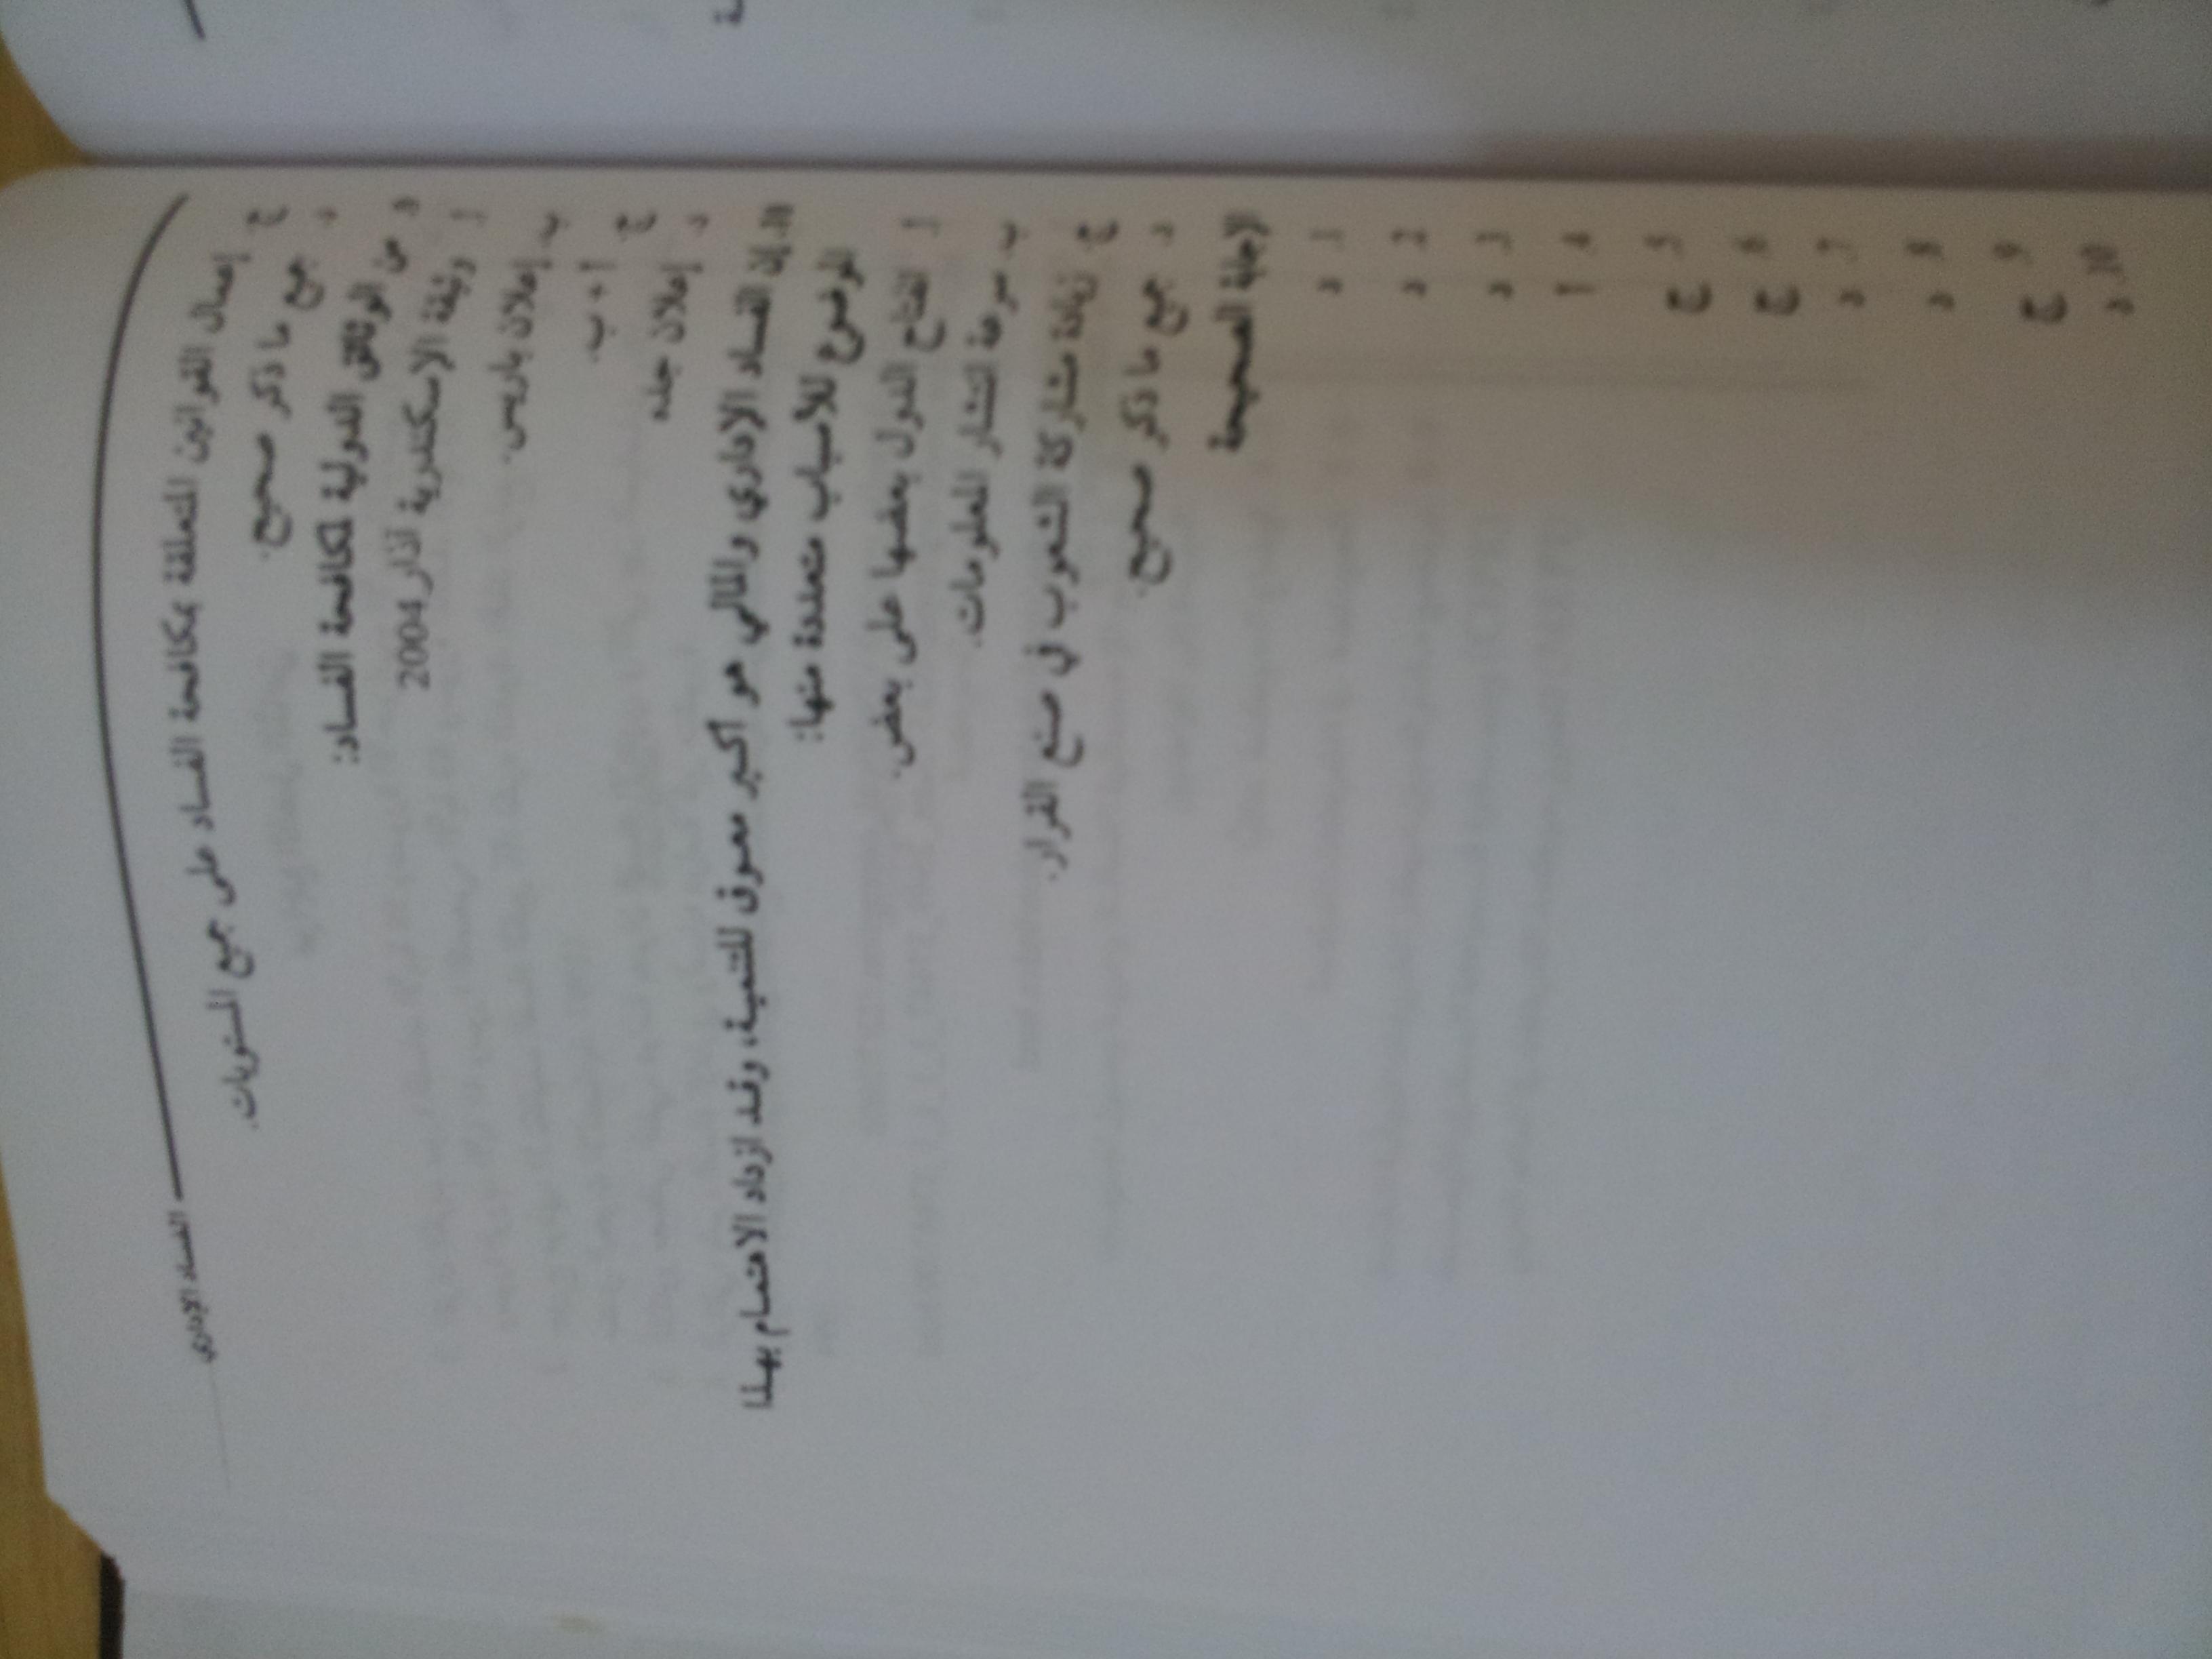 الفساد الإداري
ج. إعمال القوانين المتعلقة بمكافحة الفساد على جميع المستويات.
د. جميع ما ذكر صحيح.
9. من الوثائق الدولية لمكافحة الفساد:
أ. وثيقة الإسكندرية آذار 2004
ب. إعلان باريس.
ج. أ + ب.
د. إعلان جده
10. إن الفساد الإداري والمالي هو أكبر معوق للتنمية، وقد ازداد الاهتمام بهذا
الموضوع للأسباب متعددة منها:
أ. انفتاح الدول بعضها على بعض.
ب. سرعة انتشار المعلومات.
ج. زيادة مشاركة الشعوب في صنع القرار.
د. جميع ما ذكر صحيح.
الإجابة الصحيحة
1. د
2. د
3. د
4. أ
5. ج
6. ج
7. د
8. د
9. ج
10. د